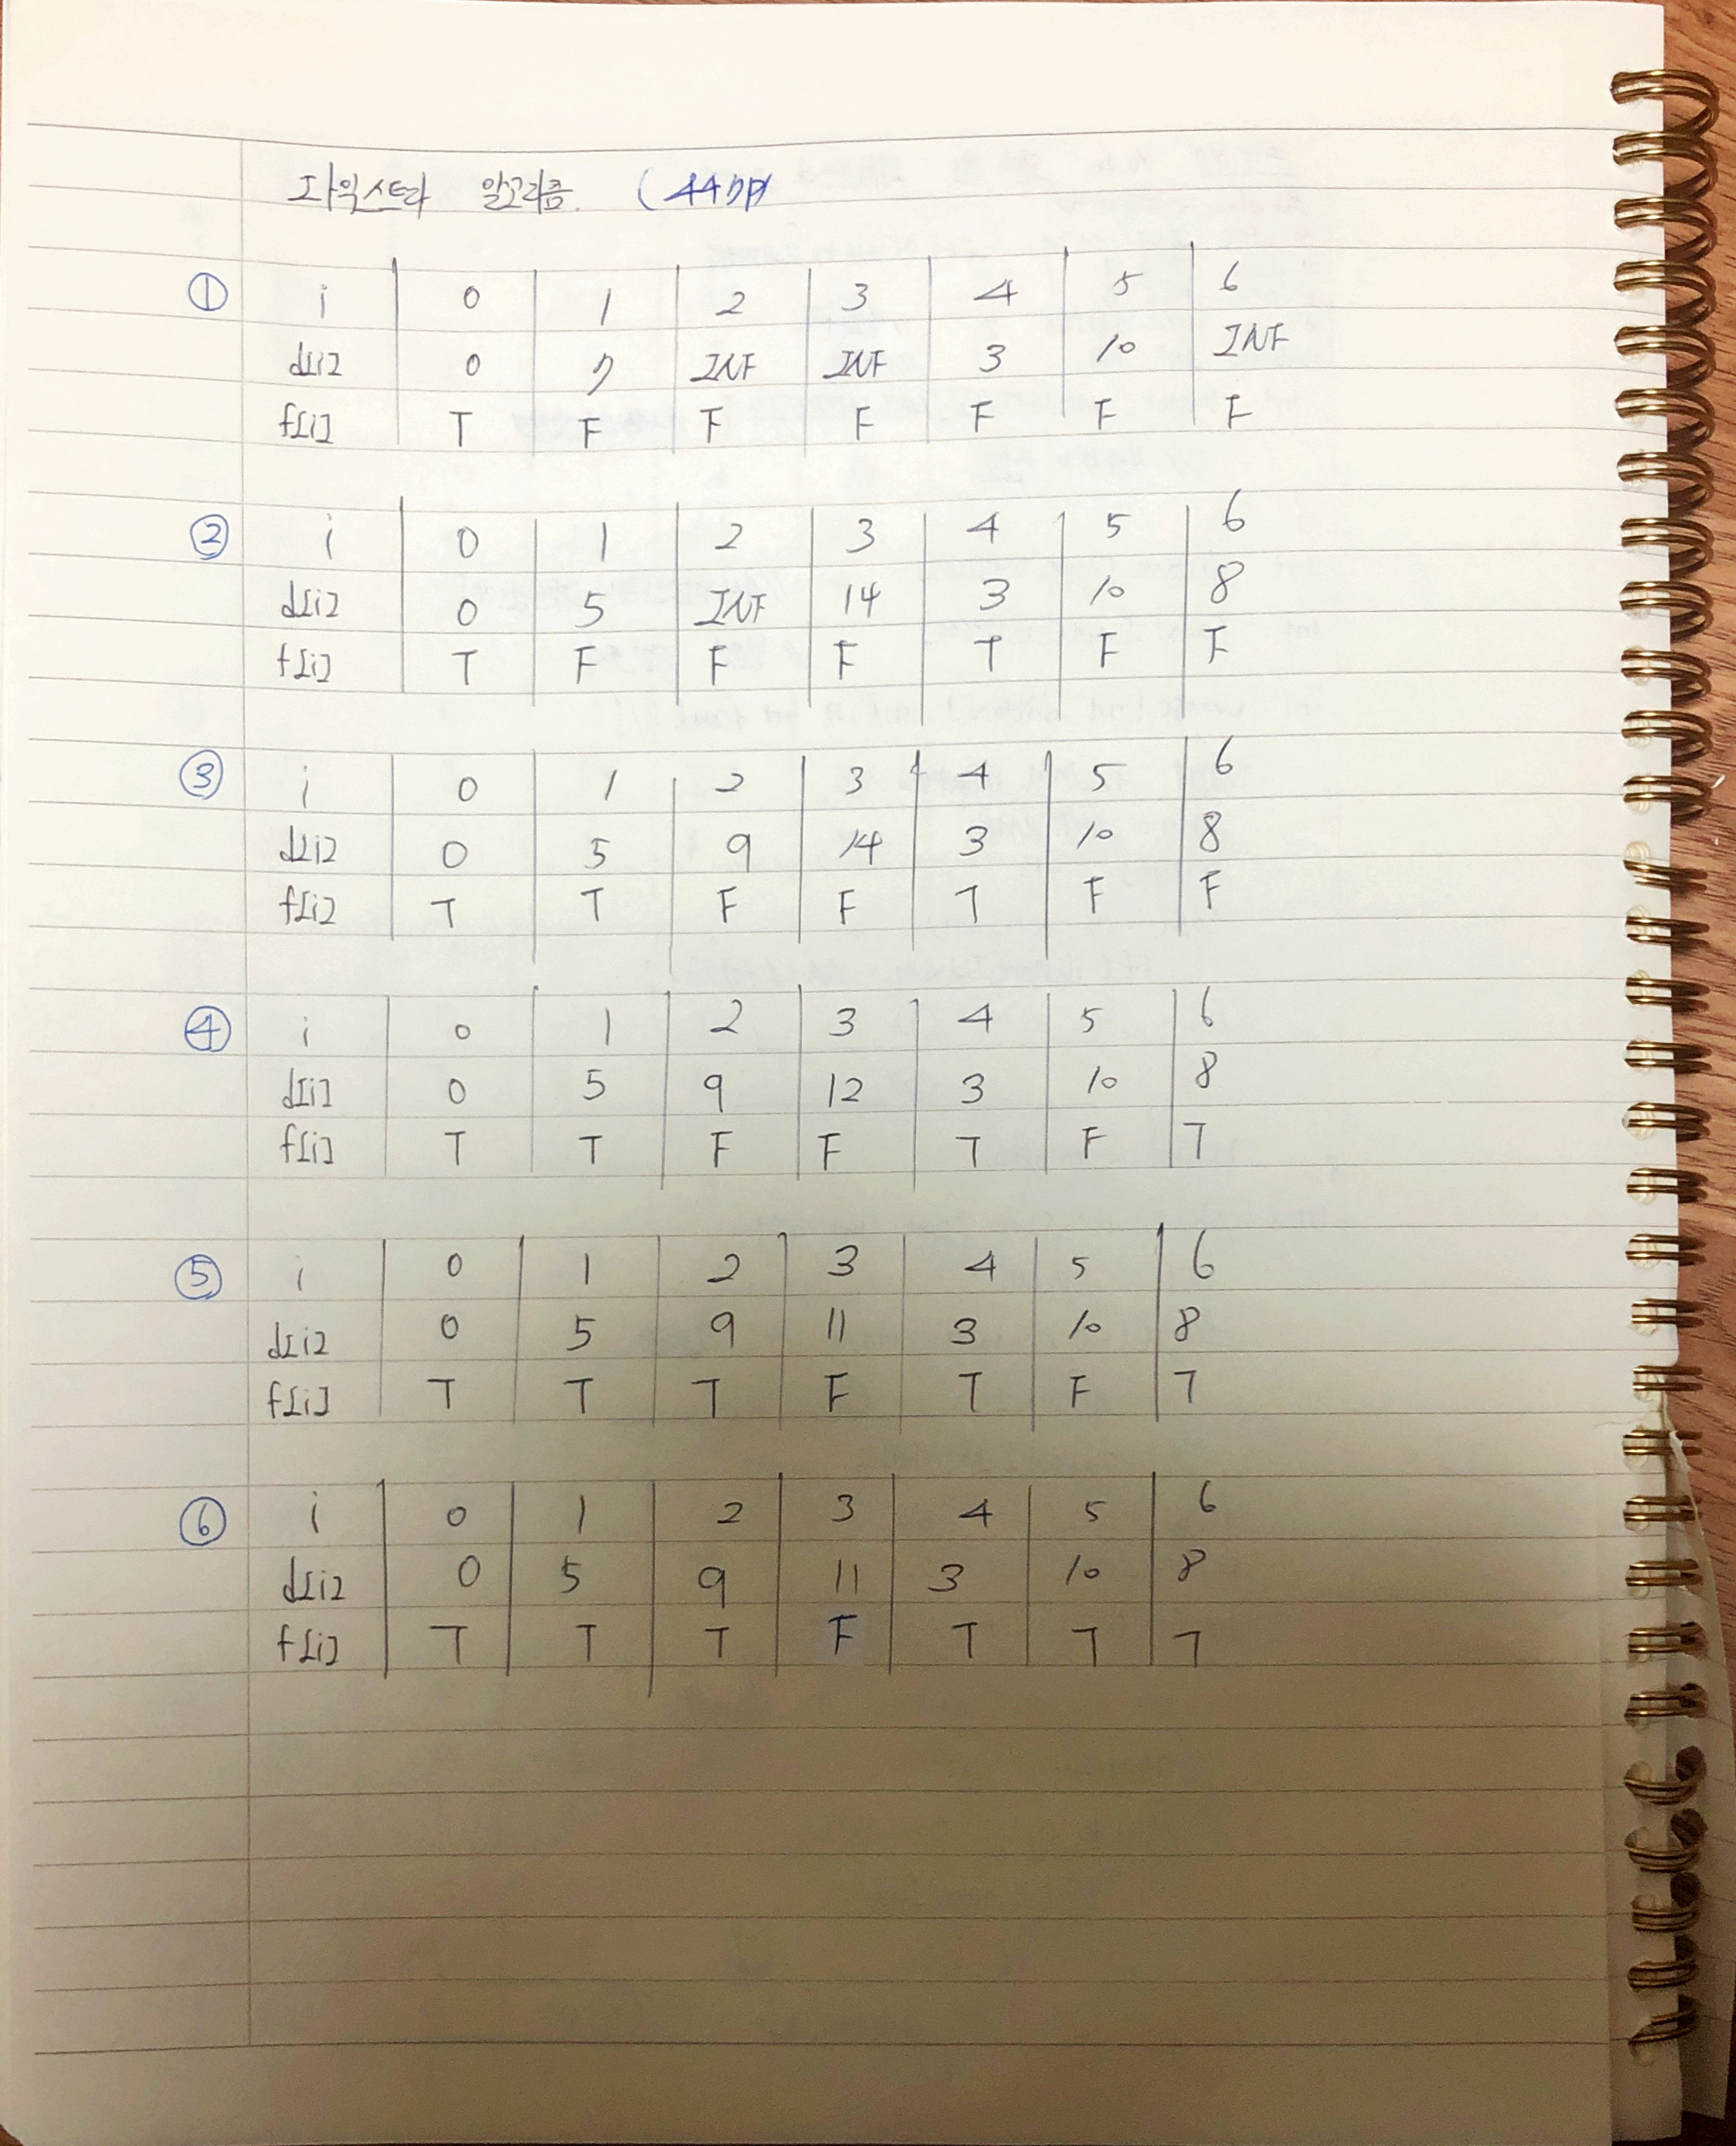 다익스트라 알고리즘. (447p)
① i 0 1 2 3 4 5 6
d[i] 0 7 INF INF 3 10 INF
f[i] T F F F F F F
② i 0 1 2 3 4 5 6
d[i] 0 5 INF 14 3 10 8
f[i] T F F F T F F
③ i 0 1 2 3 4 5 6
d[i] 0 5 9 14 3 10 8
f[i] T T F F T F F
④ i 0 1 2 3 4 5 6
d[i] 0 5 9 12 3 10 8
f[i] T T F F T F T
⑤ i 0 1 2 3 4 5 6
d[i] 0 5 9 11 3 10 8
f[i] T T T F T F T
⑥ i 0 1 2 3 4 5 6
d[i] 0 5 9 11 3 10 8
f[i] T T T F T T T